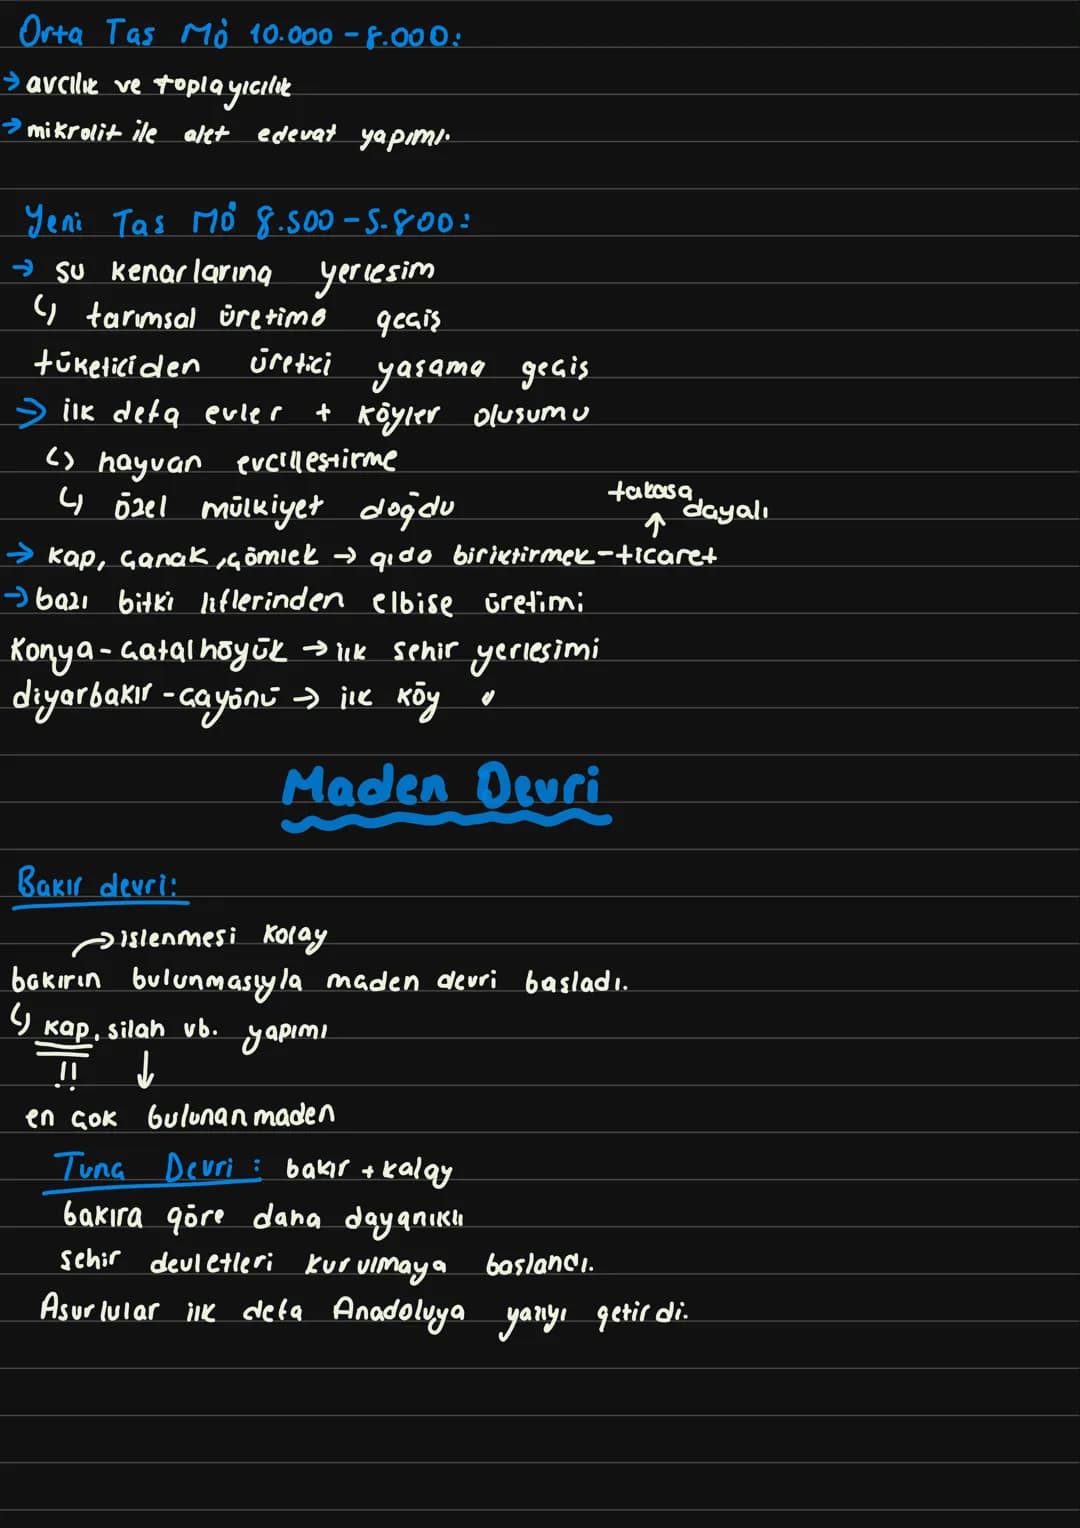 Orta Tas MÖ 10.000 - 8.000:
→ avcılık ve toplayıcılık
→ mikrolit ile alet edevat yapımı.
Yeni Tas MÖ 8.500 - 5.800:
→ su kenarlarına yerlesim
↳ tarımsal üretime geçiş
tüketiciden üretici yasama geçis
→ ilk defa evler + köyler olusumu
↳ hayvan evcillestirme
↳ özel mülkiyet doğdu
takasa dayalı
↑
→ kap, çanak, çömlek → gıda biriktirmek - ticaret
→ bazı bitki liflerinden elbise üretimi
Konya - Çatalhöyük → ilk sehir yerlesimi
diyarbakır - Çayönü → ilk köy "
Maden Devri
Bakır devri:
→ islenmesi kolay
bakırın bulunmasıyla maden devri basladı.
↳ kap, silah vb. yapımı
!! ↓
en çok bulunan maden
Tunç Devri : bakır + kalay
bakıra göre daha dayanıklı
sehir devletleri kurulmaya baslandı.
Asurlular ilk defa Anadoluya yazıyı getirdi.